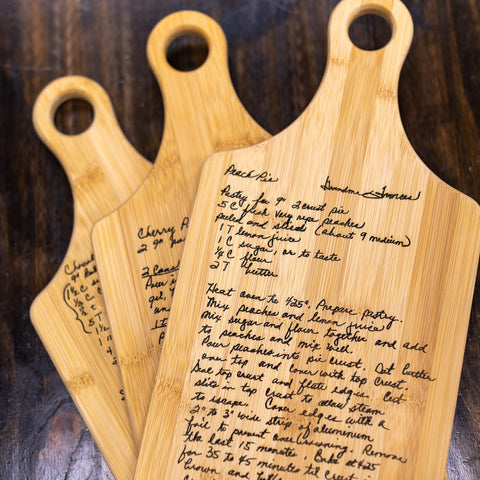 Peach Pie
Grandma Frances
Pastry for 9" 2 crust pie
5 C fresh very ripe peaches
peeled and sliced (about 9 medium)
1 T lemon juice
1 C sugar, or to taste
1/4 C flour
2 T butter
Heat oven to 425°. Prepare pastry.
Mix peaches and lemon juice
Mix sugar and flour together and add
to peaches and mix well.
Pour peaches into pie crust. Dot butter
over top and cover with top crust.
Seal top crust and flute edges. Cut
slits in top crust to allow steam
to escape. Cover edges with a
2" to 3" wide strip of aluminum
foil to prevent over browning. Remove
the last 15 minutes. Bake at 425
for 35 to 45 minutes til crust is
brown and
Cherry P
2 9"
2 C